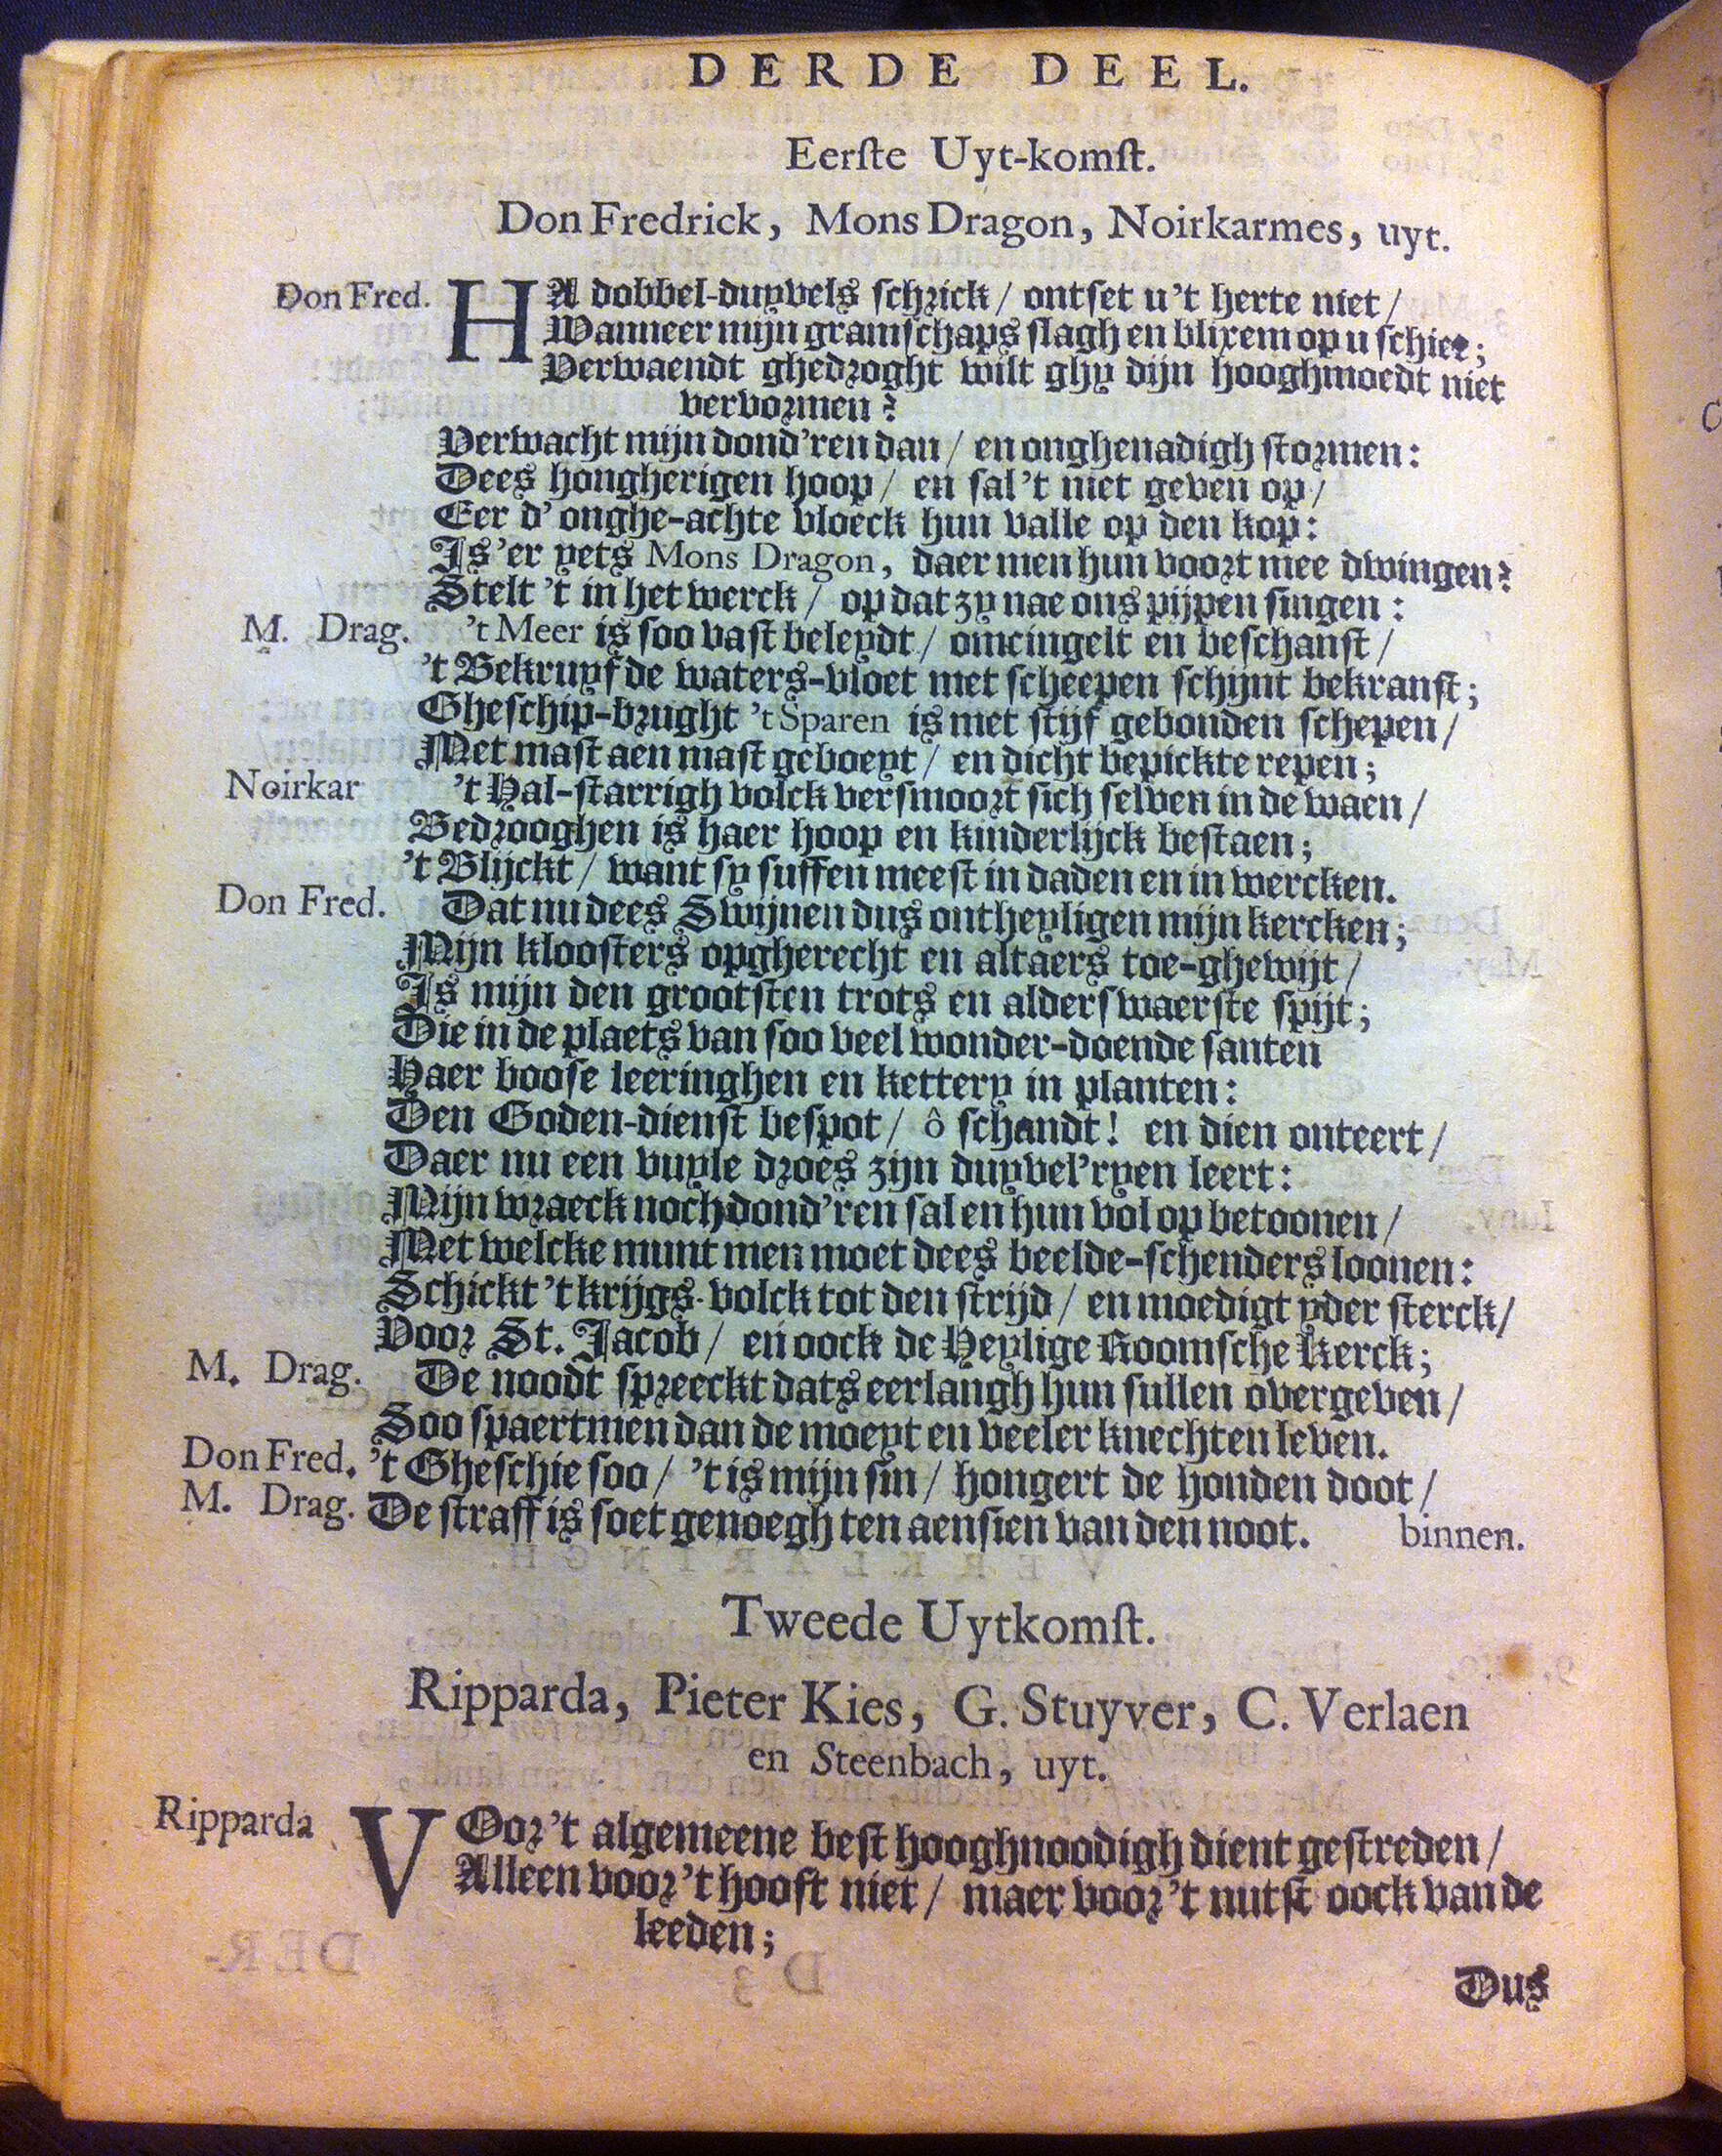 DERDE DEEL.
Eerſte Uyt-komſt.
Don Fredrick, Mons Dragon, Noirkarmes, uyt.
Don Fred. HA dobbel-duyvels ſchrick / ontſet u 't herte niet /
Wanneer mijn gramſchaps ſlagh en blixem op u ſchiet;
Verwaendt ghedroght wilt ghy dijn hooghmoedt niet
vervormen?
Verwacht mijn dond'ren dan / en onghenadigh ſtormen:
Dees hongherigen hoop / en ſal 't niet geven op /
Eer d' onghe-achte vloeck hun valle op den kop:
Is 'er yets Mons Dragon, daer men hun voort mee dwingen?
Stelt 't in het werck / op dat zy nae ons pijpen ſingen:
M. Drag. 't Meer is ſoo vaſt beleydt / omcingelt en beſchanſt /
't Bekruyfde waters-vloet met ſcheepen ſchijnt bekranſt;
Gheſchip-brught 't Sparen is met ſtijf gebonden ſchepen /
Met maſt aen maſt geboeyt / en dicht bepickte repen;
Noirkar 't Hal-ſtarrigh volck verſmoort ſich ſelven in de waen /
Bedrooghen is haer hoop en kinderlijck beſtaen;
't Blijckt / want ſy ſuffen meeſt in daden en in wercken.
Don Fred. Dat nu dees Swijnen dus ontheyligen mijn kercken;
Mijn klooſters opgherecht en altaers toe-ghewijt /
Is mijn den grootſten trots en alderſwaerſte ſpijt;
Die in de plaets van ſoo veel wonder-doende ſanten
Haer booſe leeringhen en kettery in planten:
Den Goden-dienſt beſpot / ô ſchandt! en dien onteert /
Daer nu een vuyle droes zijn duyvel'ryen leert:
Mijn wraeck noch dond'ren ſal en hun vol op betoonen /
Met welcke munt men moet dees beelde-ſchenders loonen:
Schickt 't krijgs-volck tot den ſtrijd / en moedigt yder ſterck /
Voor St. Jacob / en oock de Heylige Roomſche Kerck;
M. Drag. De noodt ſpreeckt dats eerlangh hun ſullen overgeven /
Soo ſpaert men dan de moeyt en veeler knechten leven.
Don Fred. 't Gheſchie ſoo / 't is mijn ſin / hongert de honden doot /
M. Drag. De ſtraff is ſoet genoegh ten aenſien van den noot. binnen.
Tweede Uytkomſt.
Ripparda, Pieter Kies, G. Stuyver, C. Verlaen
en Steenbach, uyt.
Ripparda VOor 't algemeene beſt hooghnoodigh dient geſtreden /
Alleen voor 't hooft niet / maer voor 't nutſt oock van de
leeden;
Dus